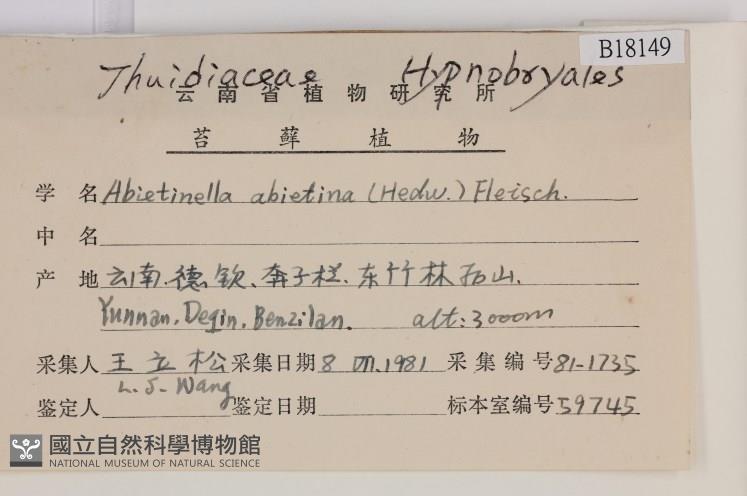 B18149
Thuidiaceae Hypnobryales
云南省植物研究所
苔藓植物
学名 Abietinella abietina (Hedw.) Fleisch.
中名
产地 云南.德钦.奔子栏.东竹林后山.
Yunnan. Deqin. Benzilan. alt: 3000m
采集人 王立松 采集日期 8 VII.1981 采集编号 81-1735
L. S. Wang
鉴定人 鉴定日期 标本室编号 59745
國立自然科學博物館
NATIONAL MUSEUM OF NATURAL SCIENCE